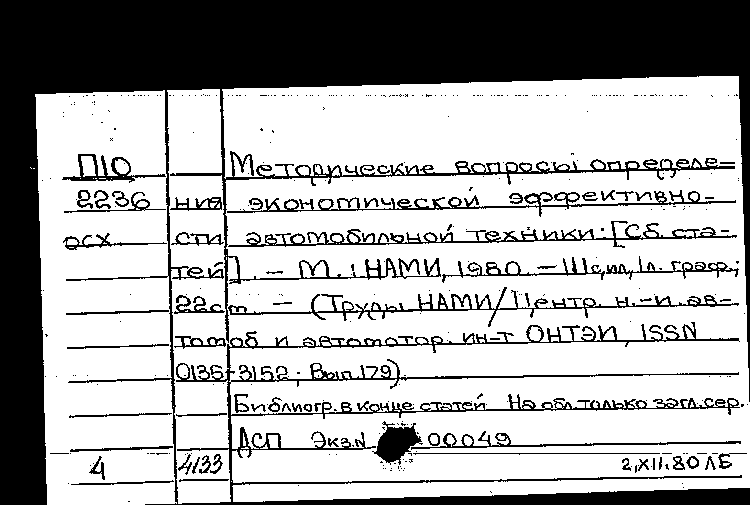 П10 Методические вопросы определе=
2236 ния экономической эффективно-
осх сти автомобильной техники: [Сб. ста-
тей]. – М.: НАМИ, 1980. – 111с, ил, 1л. граф.;
22см. – (Труды НАМИ/Центр. н.-и. ав-
томоб и автомотор. ин-т ОНТЭИ, ISSN
0135-3152; Вып. 179).
Библиогр. в конце статей На обл. только загл. сер.
ДСП Экз.N 00049
4 4133 2.XII.80 ЛБ